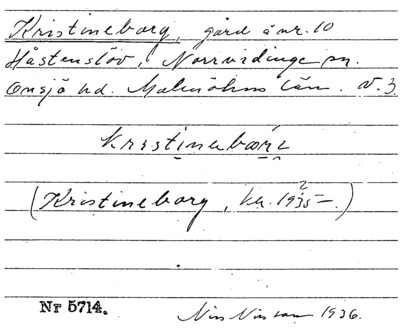 Kristineborg, gård å nr. 10
Håstenslöv, Norrvidinge sn.
Onsjö hd. Malmöhus län. V. 3
kristinabåɽʒ
(Kristineborg, ka. 1935 –.)
Nr 5714.
Nils Nilsson 1936.